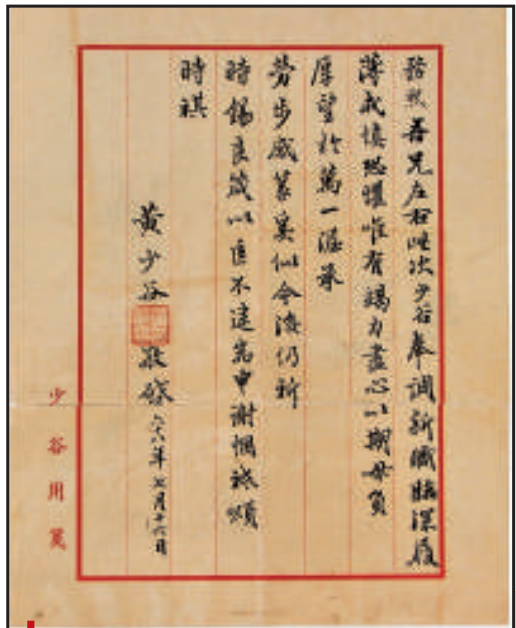 吾兄左右此次少谷奉調新職臨深履
薄戒慎恐懼唯有竭力盡心以期毋負
厚望於萬一渥承
勞步感篆奚似今後仍祈
時錫良箴以匡不逮耑申謝悃祗頌
時祺
黃少谷敬啟六十八年七月十六日
少谷用箋